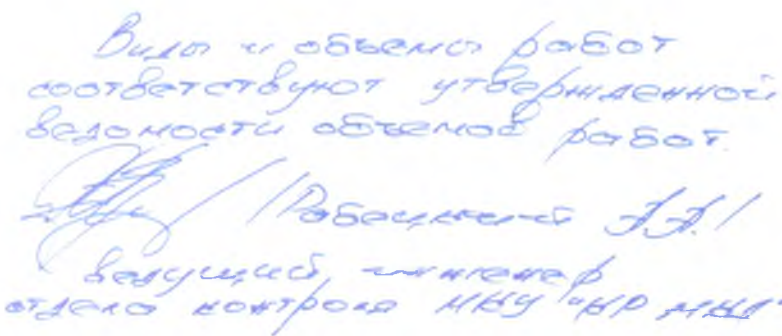 Виды и объемы работ
соответствуют утвержденной
ведомости объемов работ.
ведущий инженер
отдела контроля МКУ